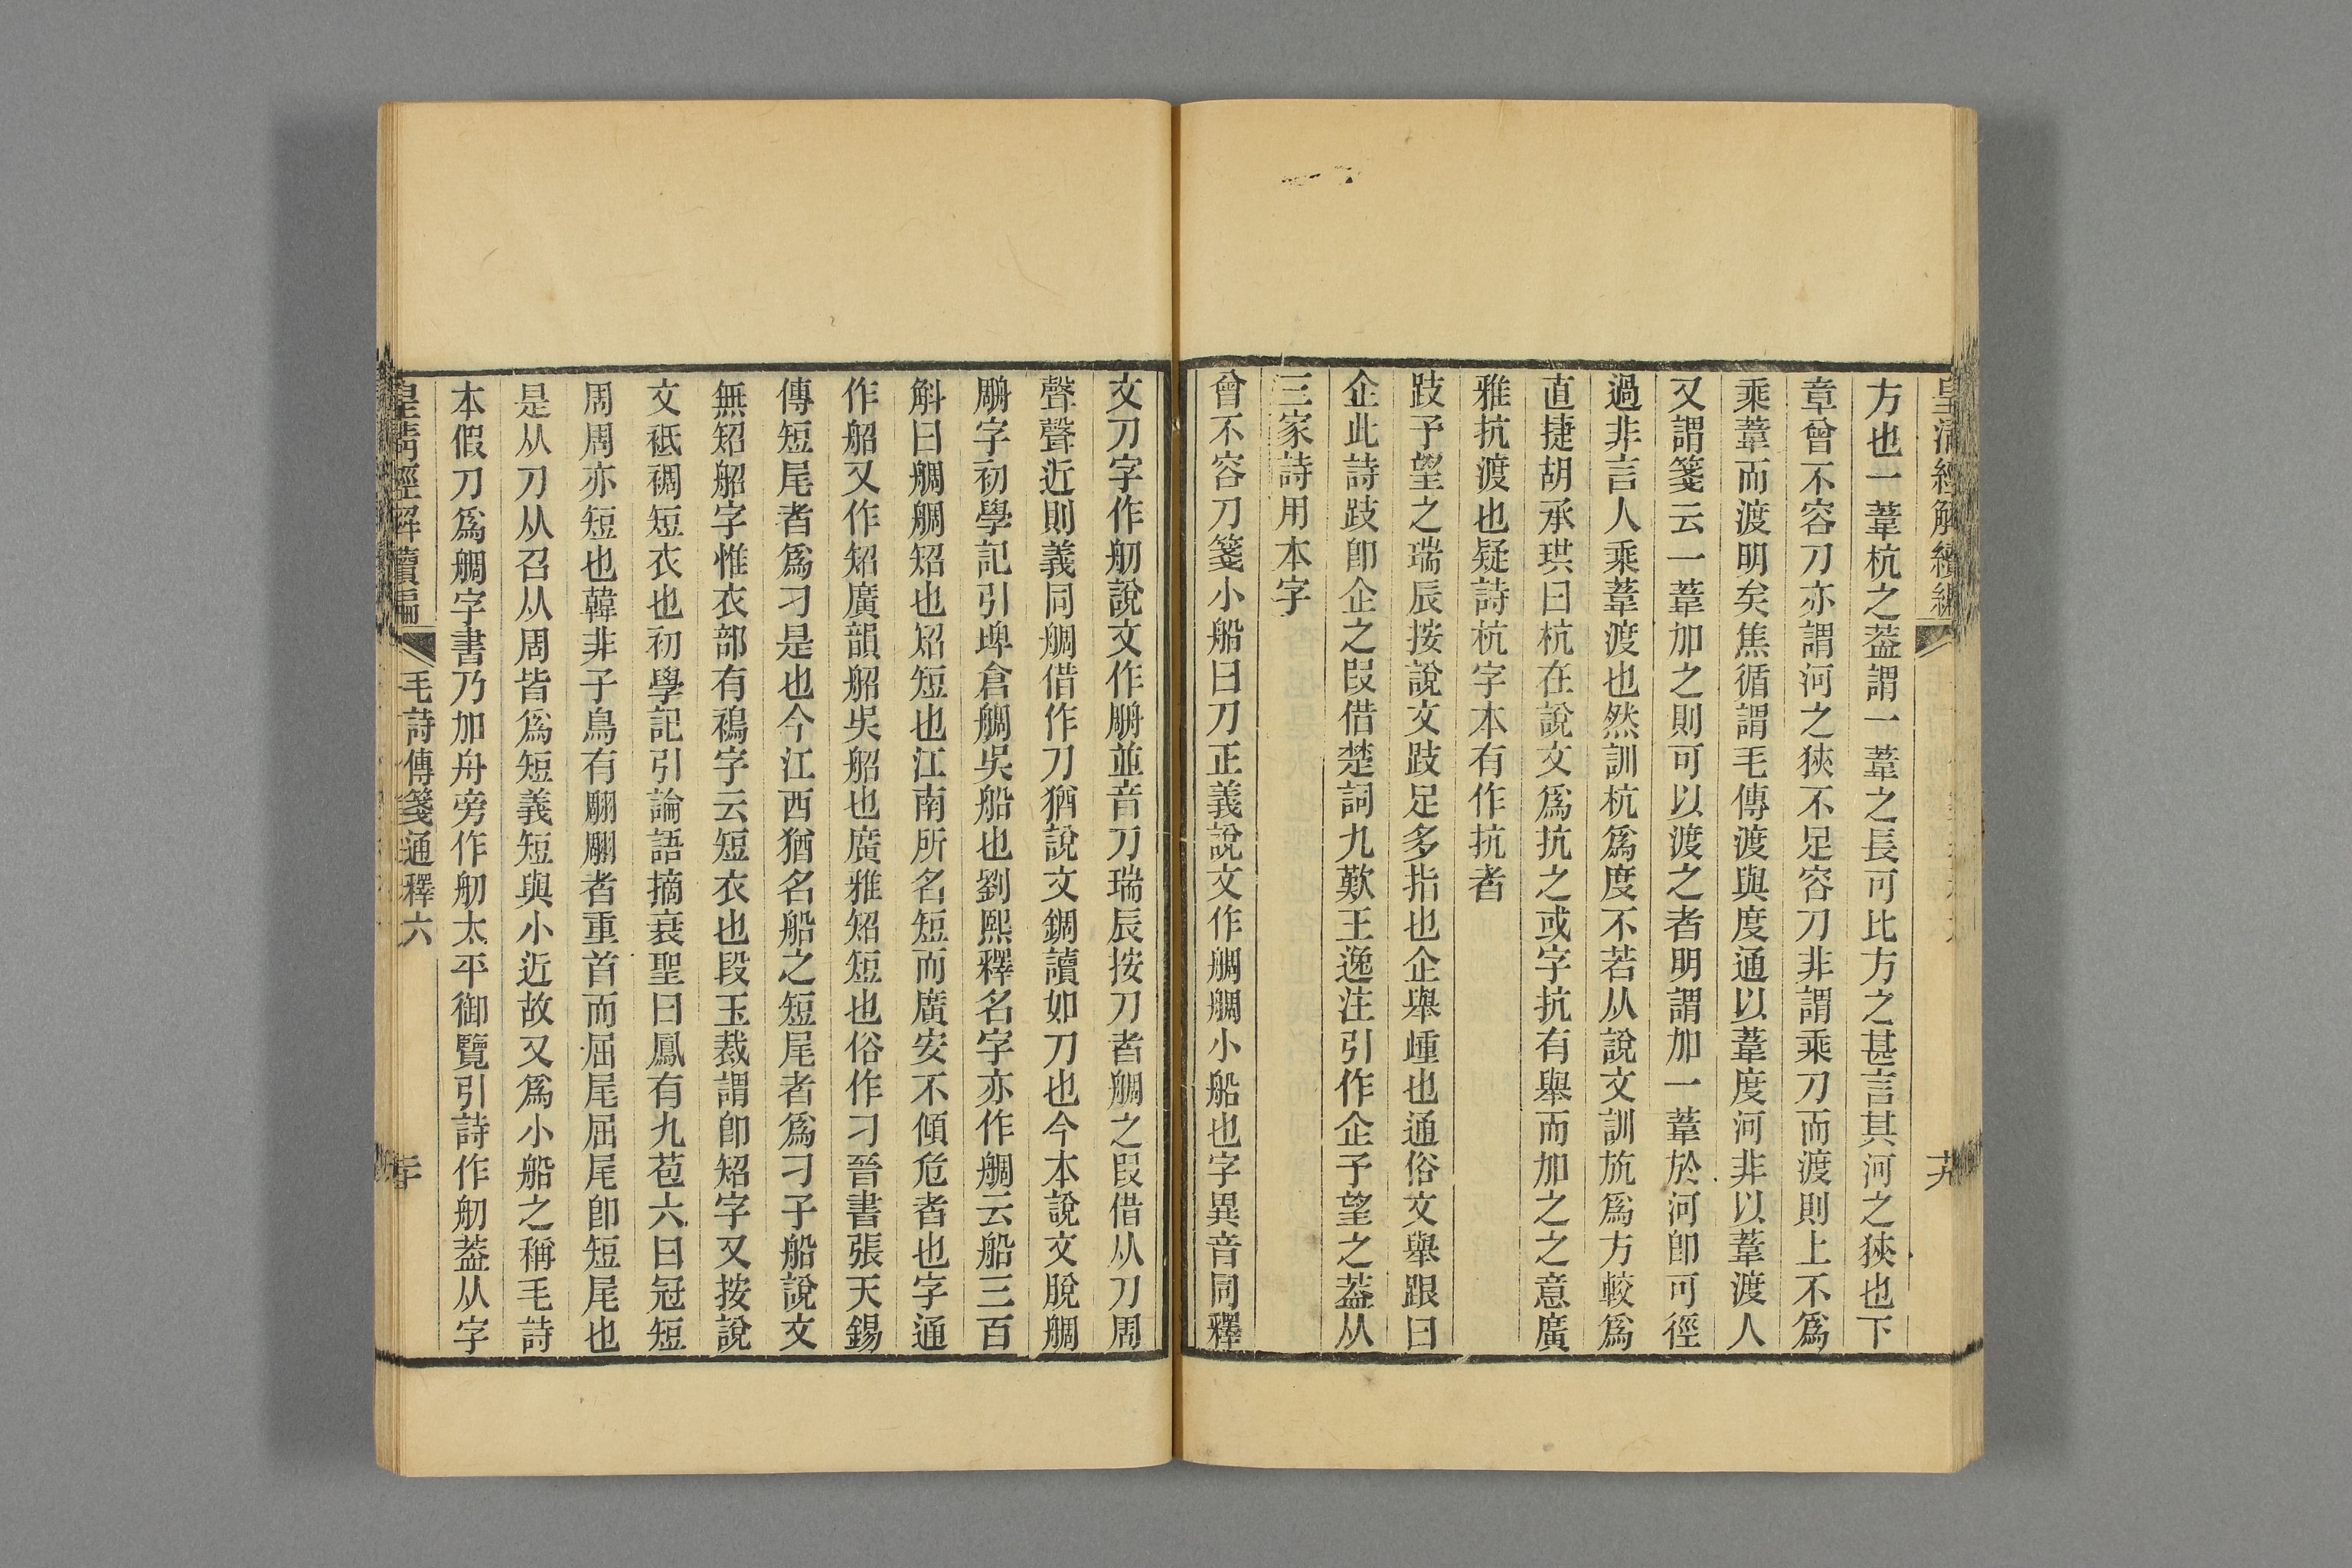 方也一葦杭之葢謂一葦之長可比方之甚言其河之狹也下
章曾不容刀亦謂河之狹不足容刀非謂乘刀而渡則上不爲
乘葦而渡明矣焦循謂毛傳渡與度通以葦度河非以葦渡人
又謂箋云一葦加之則可以渡之者明謂加一葦於河卽可徑
過非言人乘葦渡也然訓杭爲度不若从說文訓斻爲方較爲
直捷胡承珙曰杭在說文爲抗之或字抗有舉而加之之意廣
雅抗渡也疑詩杭字本有作抗者
跂予望之瑞辰按說文跂足多指也企舉歱也通俗文舉跟曰
企此詩跂卽企之叚借楚詞九歎王逸注引作企予望之葢从
三家詩用本字
曾不容刀箋小船曰刀正義說文作䑩䑩小船也字異音同釋
文刀字作舠說文作𦩍並音刀瑞辰按刀者䑩之叚借从刀周
聲聲近則義同䑩借作刀猶說文錭讀如刀也今本說文脫䑩
𦩍字初學記引埤倉䑩吳船也劉熙釋名字亦作䑩云船三百
斛曰䑩䑩㹦也㹦短也江南所名短而廣安不傾危者也字通
作艒又作㹦廣韻艒吳船也廣雅㹦短也俗作刁晉書張天錫
傳短尾者爲刁是也今江西猶名船之短尾者爲刁子船說文
無㹦字惟衣部有䙚字云短衣也段玉裁謂卽㹦字又按說
文袛裯短衣也初學記引論語摘衰聖曰鳳有九苞六曰冠短
周周亦短也韓非子鳥有翢翢者重首而屈尾屈尾卽短尾也
是从刀从召从周皆爲短義短與小近故又爲小船之稱毛詩
本假刀爲䑩字書乃加舟旁作舠太平御覽引詩作舠葢从字
皇淸經解續編
毛詩傳箋通釋六